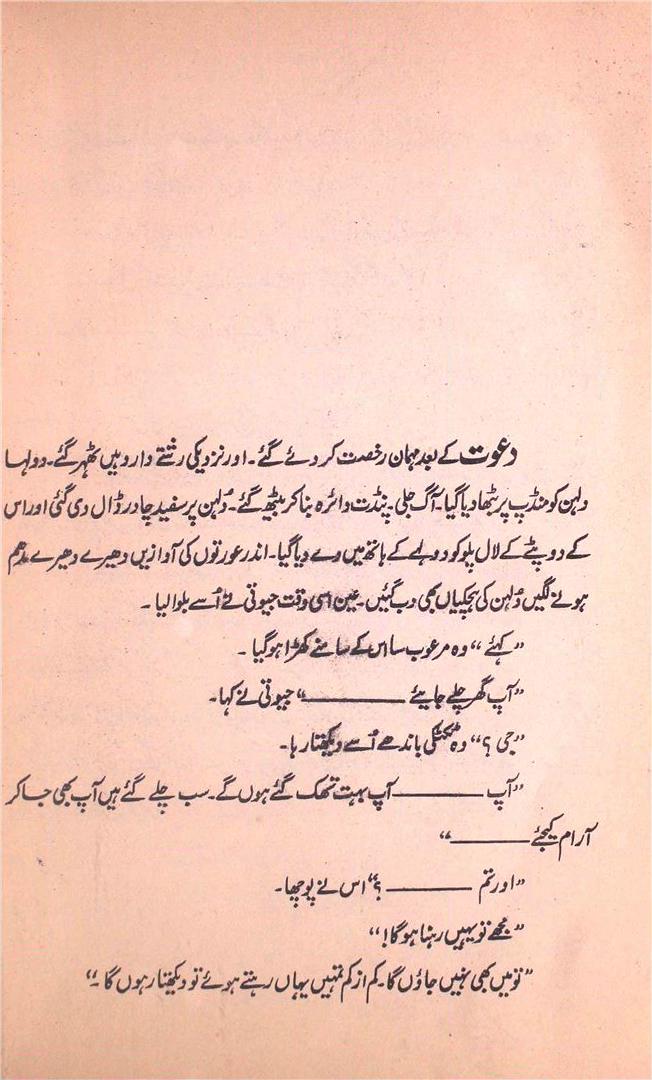 دعوت کے بعد مہمان رخصت کر دئے گئے۔ اور نزدیکی رشتے دار وہیں ٹھہر گئے۔ دولہا
دلہن کو منڈپ پر بٹھا دیا گیا۔ آگ جلی۔ پنڈت دائرہ بنا کر بیٹھ گئے۔ دُلہن پر سفید چادر ڈال دی گئی اور اس
کے دوپٹے کے لال پلو کو دولہے کے ہاتھ میں دے دیا گیا۔ اندر عورتوں کی آوازیں دھیرے دھیرے مدھم
ہونے لگیں دُلہن کی ہچکیاں بھی دب گئیں۔ عین اسی وقت جیوتی نے اُسے بلوالیا۔
”کہئے“ وہ مرعوب سا اس کے سامنے کھڑا ہو گیا۔
”آپ گھر چلے جایئے ———“ جیوتی نے کہا۔
”جی؟“ وہ ٹکٹکی باندھے اُسے دیکھتا رہا۔
”آپ ——— آپ بہت تھک گئے ہوں گے۔ سب چلے گئے ہیں آپ بھی جا کر
آرام کیجئے ———“
”اور تم ——— ؟“ اس نے پوچھا۔
”مجھے تو یہیں رہنا ہوگا!“
”تو میں بھی نہیں جاؤں گا۔ کم از کم تمہیں یہاں رہتے ہوئے تو دیکھتا رہوں گا۔“